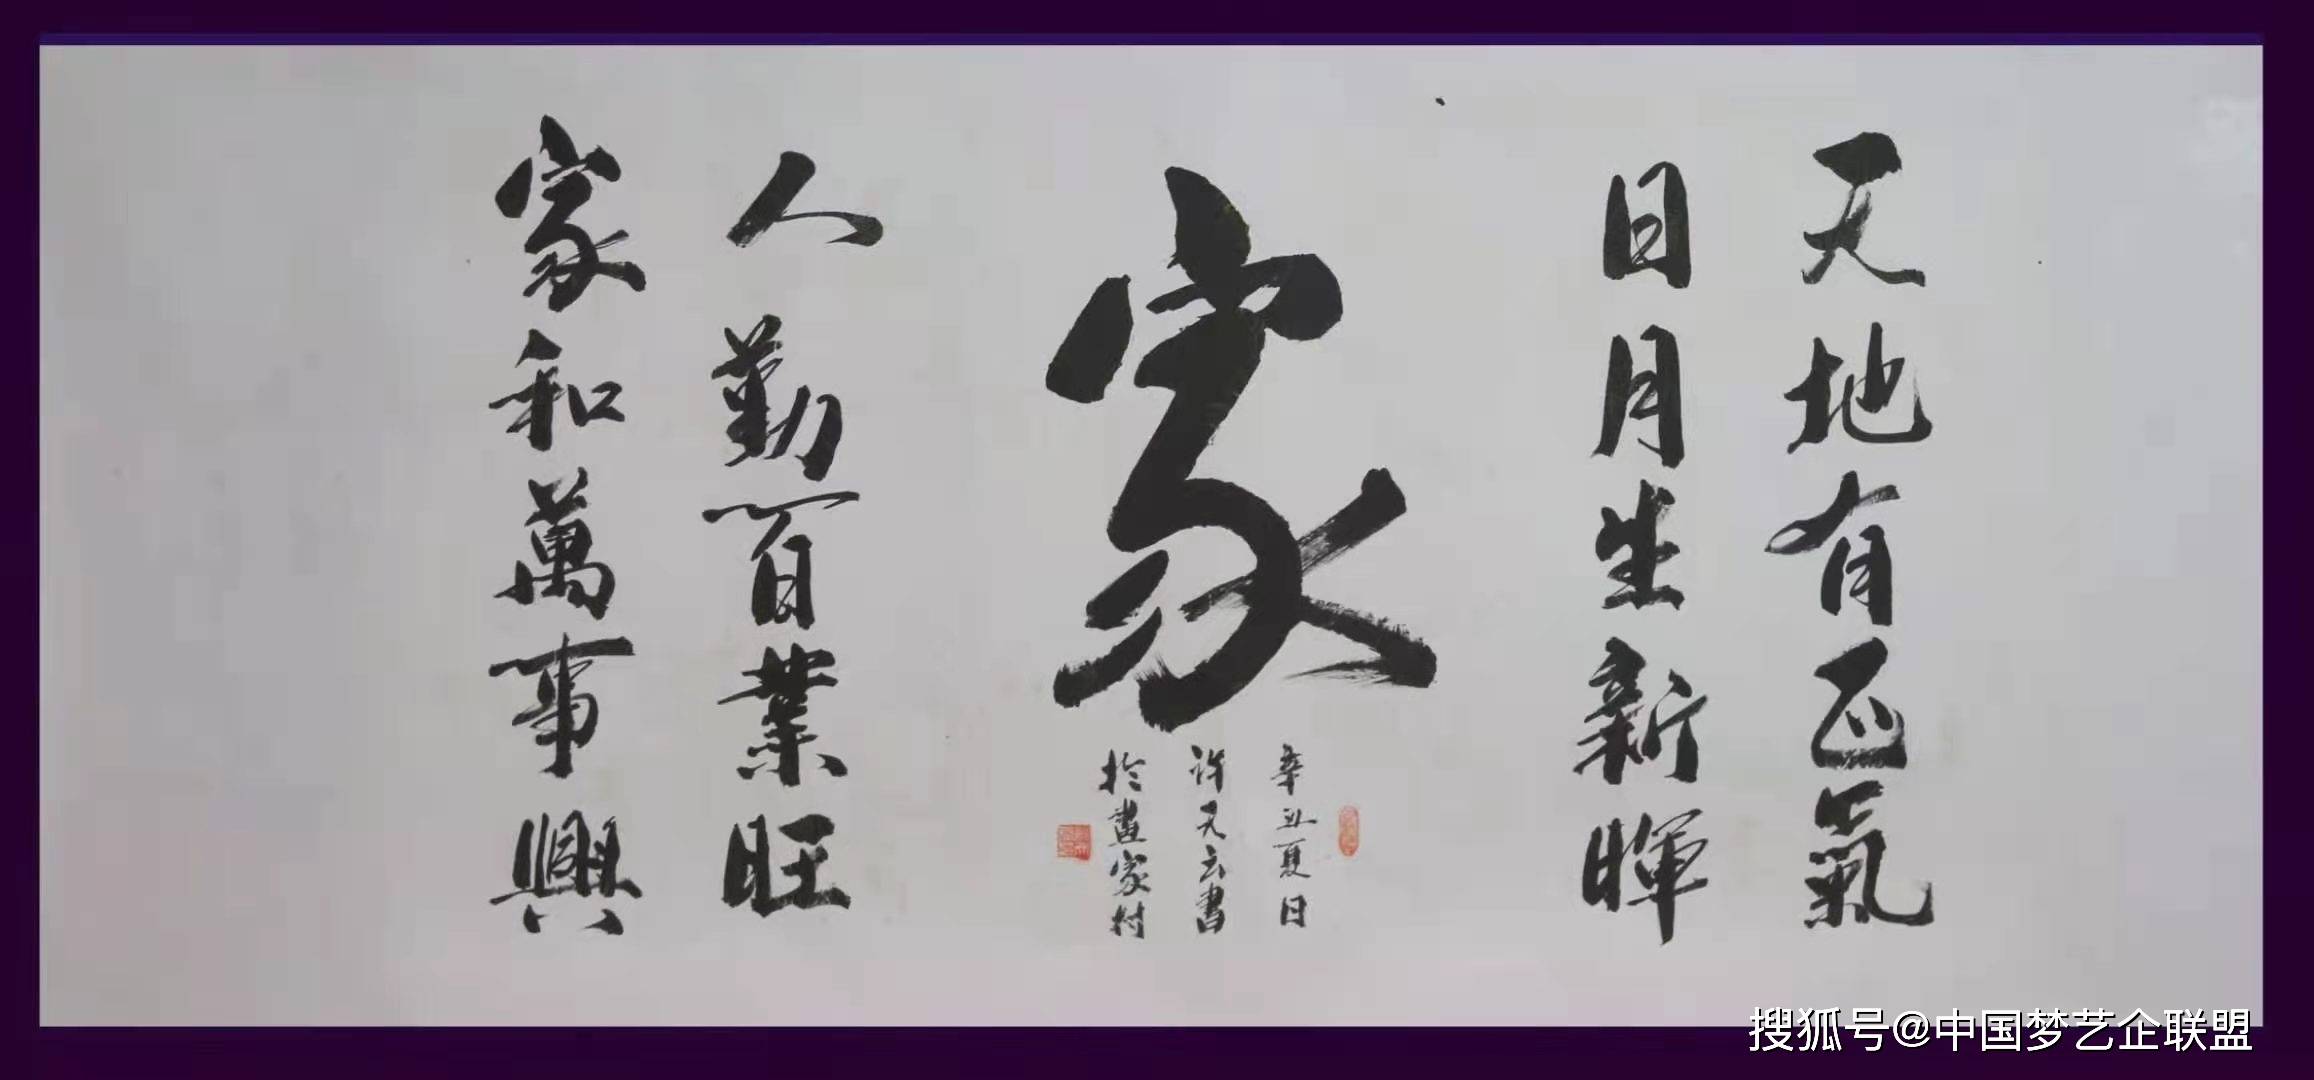 天地有正氣
日月生新暉
家
辛丑夏日
許天云書
於畫家村
人勤百業旺
家和萬事興
搜狐号@中国梦艺企联盟